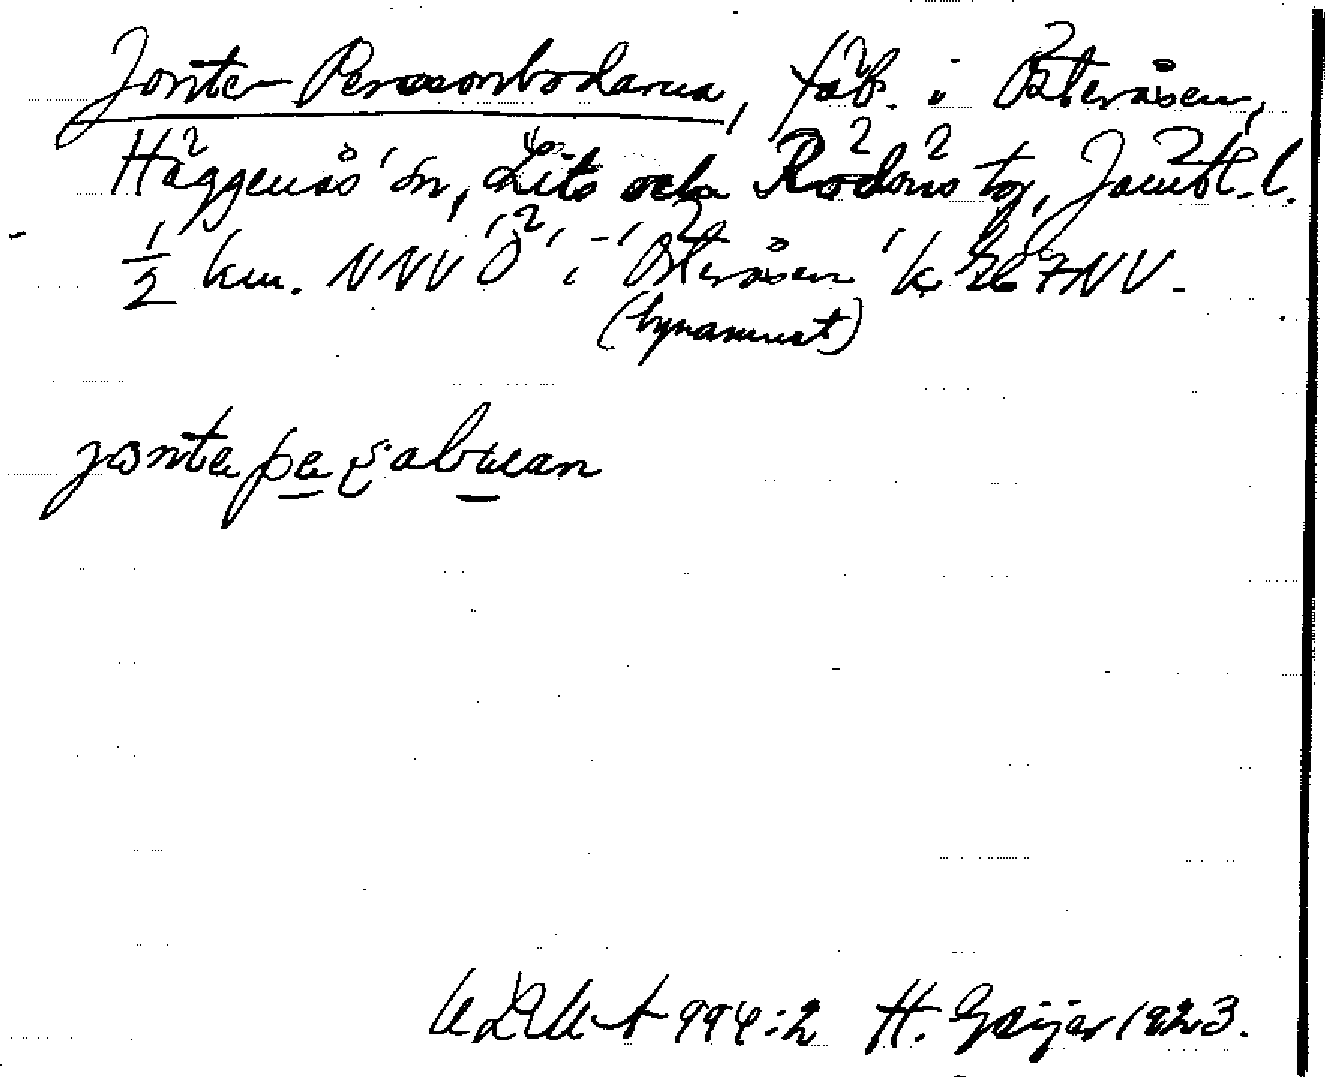 Jonte-Perssonbodarna, fäb. i Österåsen,
Häggenås sn, Lits och Rödöns tg, Jämtl. l.
½ km. NNV 'Ö' i 'Österåsen' k 967NV.
(bynamnet)
jonta pe sabuan
ULMA 994:2 H. Geijer 1923.